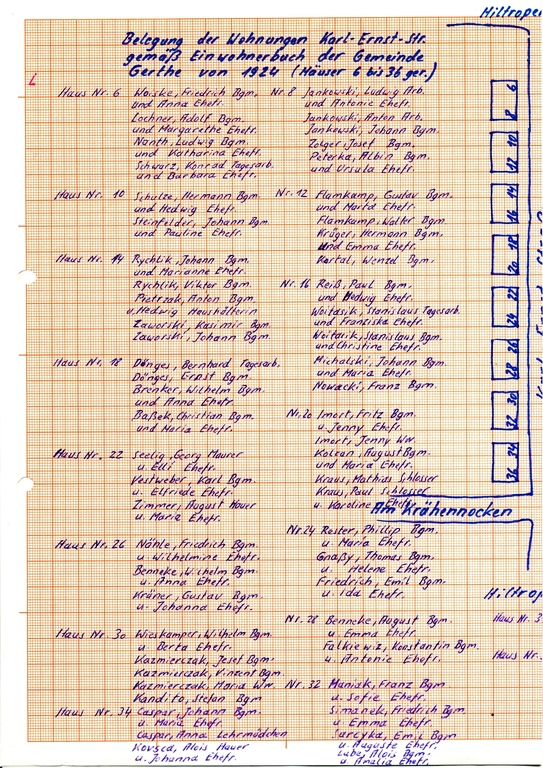 Belegung der Wohnungen Karl-Ernst-Str.
gemäß Einwohnerbuch der Gemeinde
Gerthe von 1924 (Häuser 6 bis 36 ger.)
Haus Nr. 6 Woiske, Friedrich Bgm.
und Anna Ehefr.
Lochner, Adolf Bgm.
und Margarethe Ehefr.
Nanth, Ludwig Bgm.
und Katharina Ehefr.
Schwarz, Konrad Tagesarb.
und Barbara Ehefr.
Nr. 8 Jankowski, Ludwig Arb.
und Antonie Ehefr.
Jankowski, Anton Arb.
Jankowski, Johann Bgm.
Zolger, Josef Bgm.
Peterka, Albin Bgm.
und Ursula Ehefr.
Haus Nr. 10 Schulze, Hermann Bgm.
und Hedwig Ehefr.
Steinfelder, Johann Bgm.
und Pauline Ehefr.
Nr. 12 Flamkamp, Gustav Bgm.
und Marta Ehefr.
Flamkamp, Walter Bgm.
Krüger, Hermann Bgm.
und Emma Ehefr.
Kortal, Wenzel Bgm.
Haus Nr. 14 Rychlik, Johann Bgm.
und Marianne Ehefr.
Rychlik, Viktor Bgm.
Pietrzak, Anton Bgm.
u. Hedwig Haushälterin
Zaworski, Kasimir Bgm.
Zaworski, Johann Bgm.
Nr. 16 Reiß, Paul Bgm.
und Hedwig Ehefr.
Woitasik, Stanislaus Tagesarb.
und Franziska Ehefr.
Woitasik, Stanislaus Bgm.
und Christine Ehefr.
Michalski, Johann Bgm.
und Maria Ehefr.
Nowacki, Franz Bgm.
Haus Nr. 18 Dönges, Bernhard Tagesarb.
Dönges, Ernst Bgm.
Brenker, Wilhelm Bgm.
und Anna Ehefr.
Baßek, Christian Bgm.
und Maria Ehefr.
Nr. 20 Imort, Fritz Bgm.
u. Jenny Ehefr.
Imort, Jenny Ww.
Kolean, August Bgm.
und Maria Ehefr.
Kraus, Mathias Schlosser
Kraus, Paul Schlosser
u. Karoline Ehefr.
Haus Nr. 22 Seelig, Georg Maurer
u. Elli Ehefr.
Vestweber, Karl Bgm.
u. Elfriede Ehefr.
Zimmer, August Hauer
u. Maria Ehefr.
Nr. 24 Rester, Phillip Bgm.
u. Maria Ehefr.
Gnaßy, Thomas Bgm.
u. Helene Ehefr.
Friedrich, Emil Bgm.
u. Ida Ehefr.
Haus Nr. 26 Nähle, Friedrich Bgm.
u. Wilhelmine Ehefr.
Benneke, Wilhelm Bgm.
u. Anna Ehefr.
Kröner, Gustav Bgm.
u. Johanna Ehefr.
Nr. 28 Benneke, August Bgm.
u. Emma Ehefr.
Falkiewiz, Konstantin Bgm.
u. Antonie Ehefr.
Haus Nr. 30 Wieskamper, Wilhelm Bgm.
u. Berta Ehefr.
Kazmierczak, Josef Bgm.
Kazmierczak, Vinzent Bgm.
Kazmierczak, Maria Ww.
Kandito, Stefan Bgm.
Nr. 32 Maniak, Franz Bgm.
u. Sofie Ehefr.
Simanek, Friedrich Bgm.
u. Emma Ehefr.
Sarcyka, Emil Bgm.
u. Auguste Ehefr.
Lube, Alois Bgm.
u. Amalia Ehefr.
Haus Nr. 34 Caspar, Johann Bgm.
u. Maria Ehefr.
Caspar, Anna Lehrmädchen
Alois Hauer
u. Johanna Ehefr.
Hiltroper
6
8
10
12
14
16
18
20
22
24
26
28
30
32
34
36
Am Krähennocken
Hiltrop
Haus Nr. 3
Haus Nr.